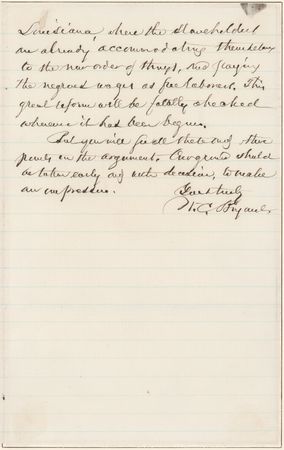 Louisiana, where the slaveholders
are already accommodating themselves
to the new order of things, and paying
the negroes wages as free laborers. This
great reform will be fatally checked
wherever it has been begun.
But you will see all these and other
points in the argument. Our ground should
be taken early and with decision, to make
an impression.
Yours truly
W. C. Bryant.